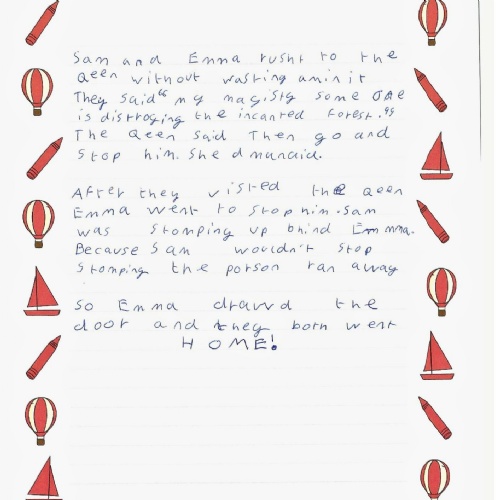 Sam and Emma rusht to the
Qeen without wasting aminit
They said "my magisty some one
is distroging the incanted forest."
The Qeen said Then go and
stop him. She dmunaid.
After they visted the Qeen
Emma went to stop him. Sam
was stomping up bhind Emmna.
Because Sam wouldn't stop
stomping the porson ran away
So Emma drawd the
door and they both went
HOME!